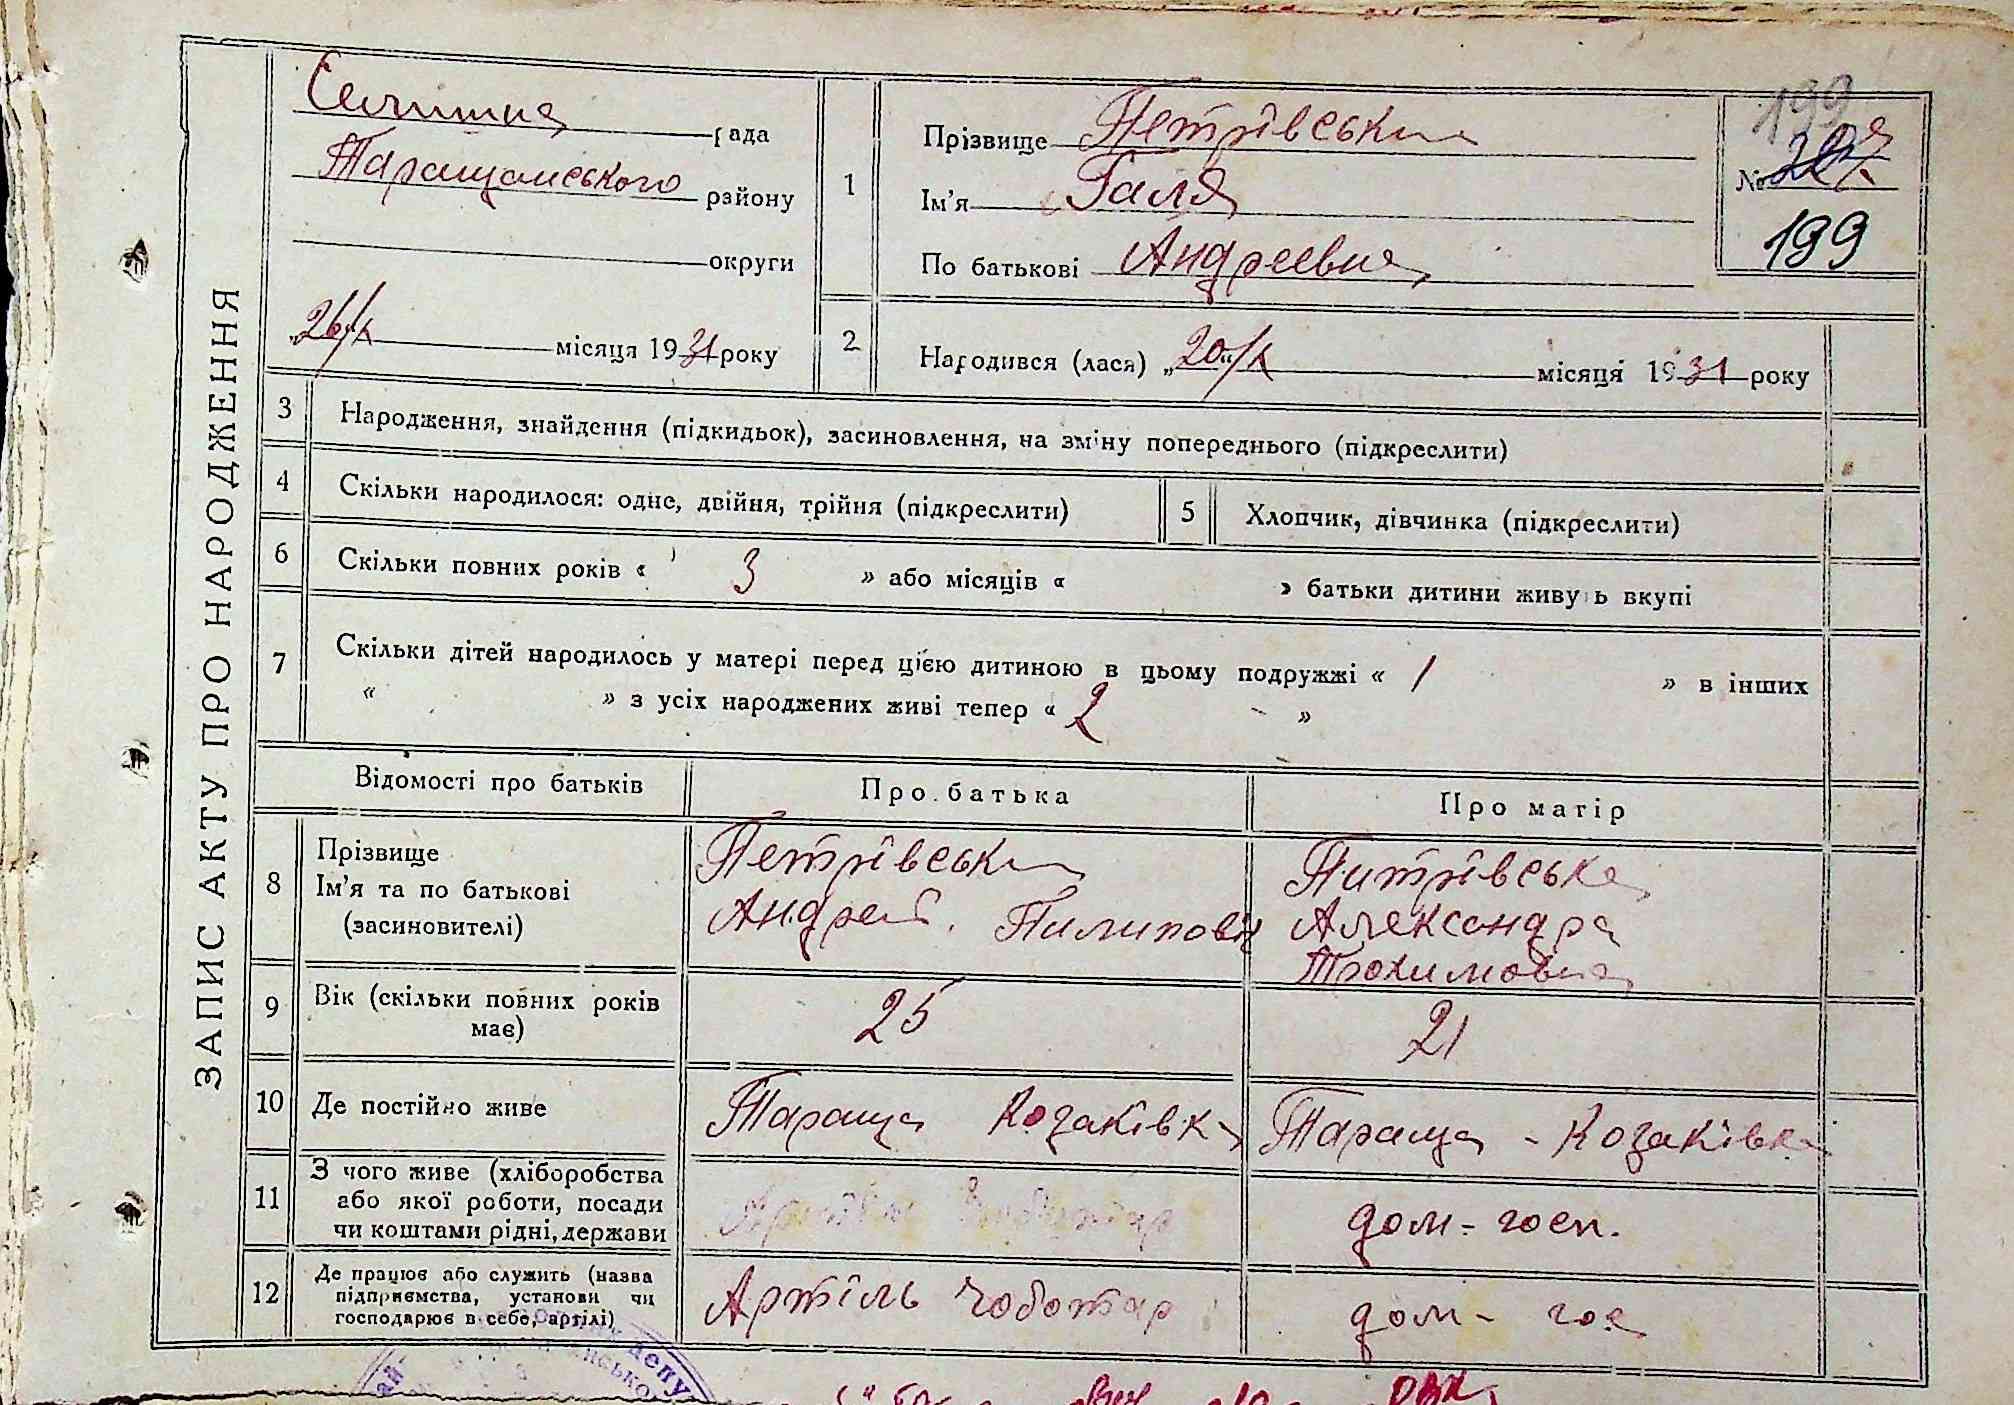 ЗАПИС АКТУ ПРО НАРОДЖЕННЯ
Селищна рада
Таращанського району
округи
„26/X місяця 1931 року
1
Прізвище Петрівська
Ім'я Галя
По батькові Андреевна
199
№ 207
199
2
Народився (лася) „20"/X місяця 1931 року
3 Народження, знайдення (підкидьок), засиновлення, на зміну попереднього (підкреслити)
4 Скільки народилося: одне, двійня, трійня (підкреслити)
5 Хлопчик, дівчинка (підкреслити)
6 Скільки повних років « 3 » або місяців « » батьки дитини живуть вкупі
7 Скільки дітей народилось у матері перед цією дитиною в цьому подружжі « 1 » в інших
« » з усіх народжених живі тепер « 2 »
Відомості про батьків Про батька Про матір
8
Прізвище
Ім'я та по батькові
(засиновителі)
Петрівськи
Андрей Пилипович
Питрівська
Александра
Трохимовна
9
Вік (скільки повних років
має)
25
21
10 Де постійно живе
Тараща Козаківка
Тараща - Козаківка
11
З чого живе (хліборобства
або якої роботи, посади
чи коштами рідні, держави
дом-госп.
12
Де працює або служить (назва
підприємства, установи чи
господарює в себе, артілі)
Артіль Чоботар
дом- гос
депу